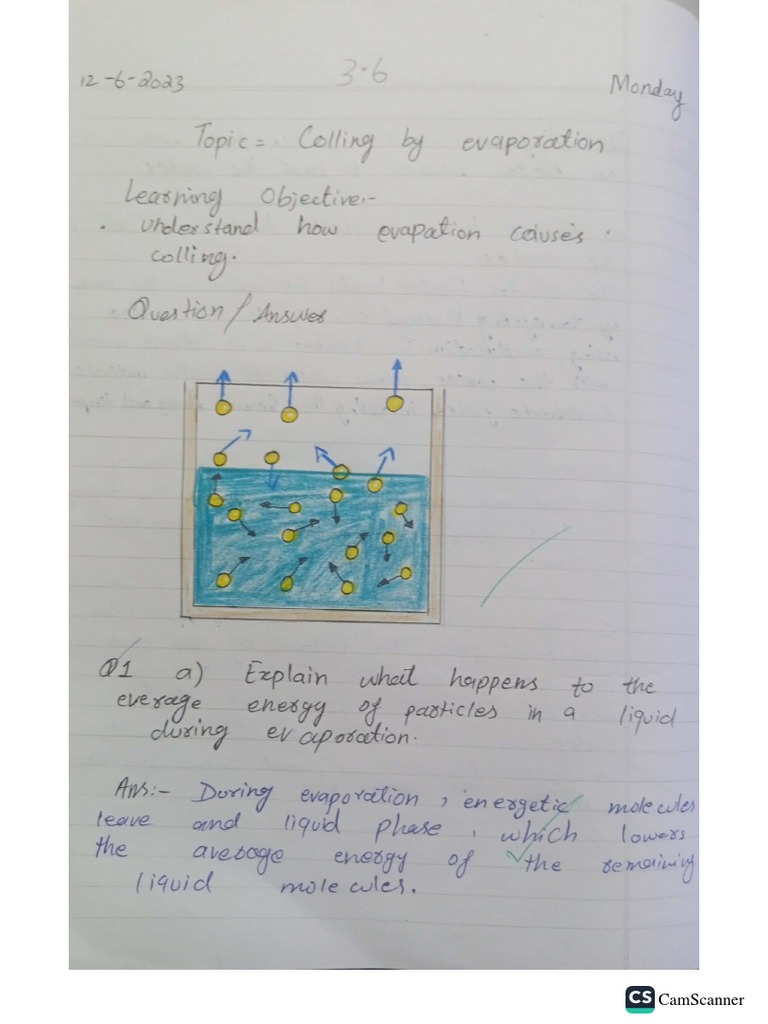 12-6-2023 3.6 Monday
Topic = Colling by evaporation
Learning Objective:-
. understand how evapation causes
colling.
. Question / Answer
Q1 a) Explain what happens to the
everage energy of particles in a liquid
during evaporation.
Ans:- During evaporation, energetic molecules
leave and liquid phase, which lowers
the average energy of the remaining
liquid molecules.
CS CamScanner